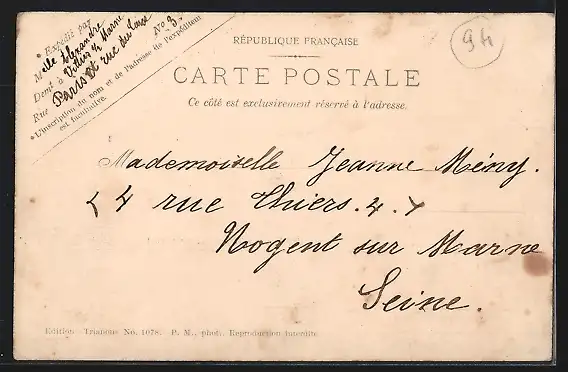 * Expédié par
Melle Alexandre
Demt à Villiers s/ Marne
Rue
Paris et rue du
No 3.
* L'inscription du nom et de l'adresse de l'expéditeur
est facultative.
94
RÉPUBLIQUE FRANÇAISE
CARTE POSTALE
Ce côté est exclusivement réservé à l'adresse.
Mademoiselle Jeanne Mény.
4 rue Thiers. 4.
Nogent sur Marne
Seine.
Edition Trianons No. 1078. P. M., phot. Reproduction interdite